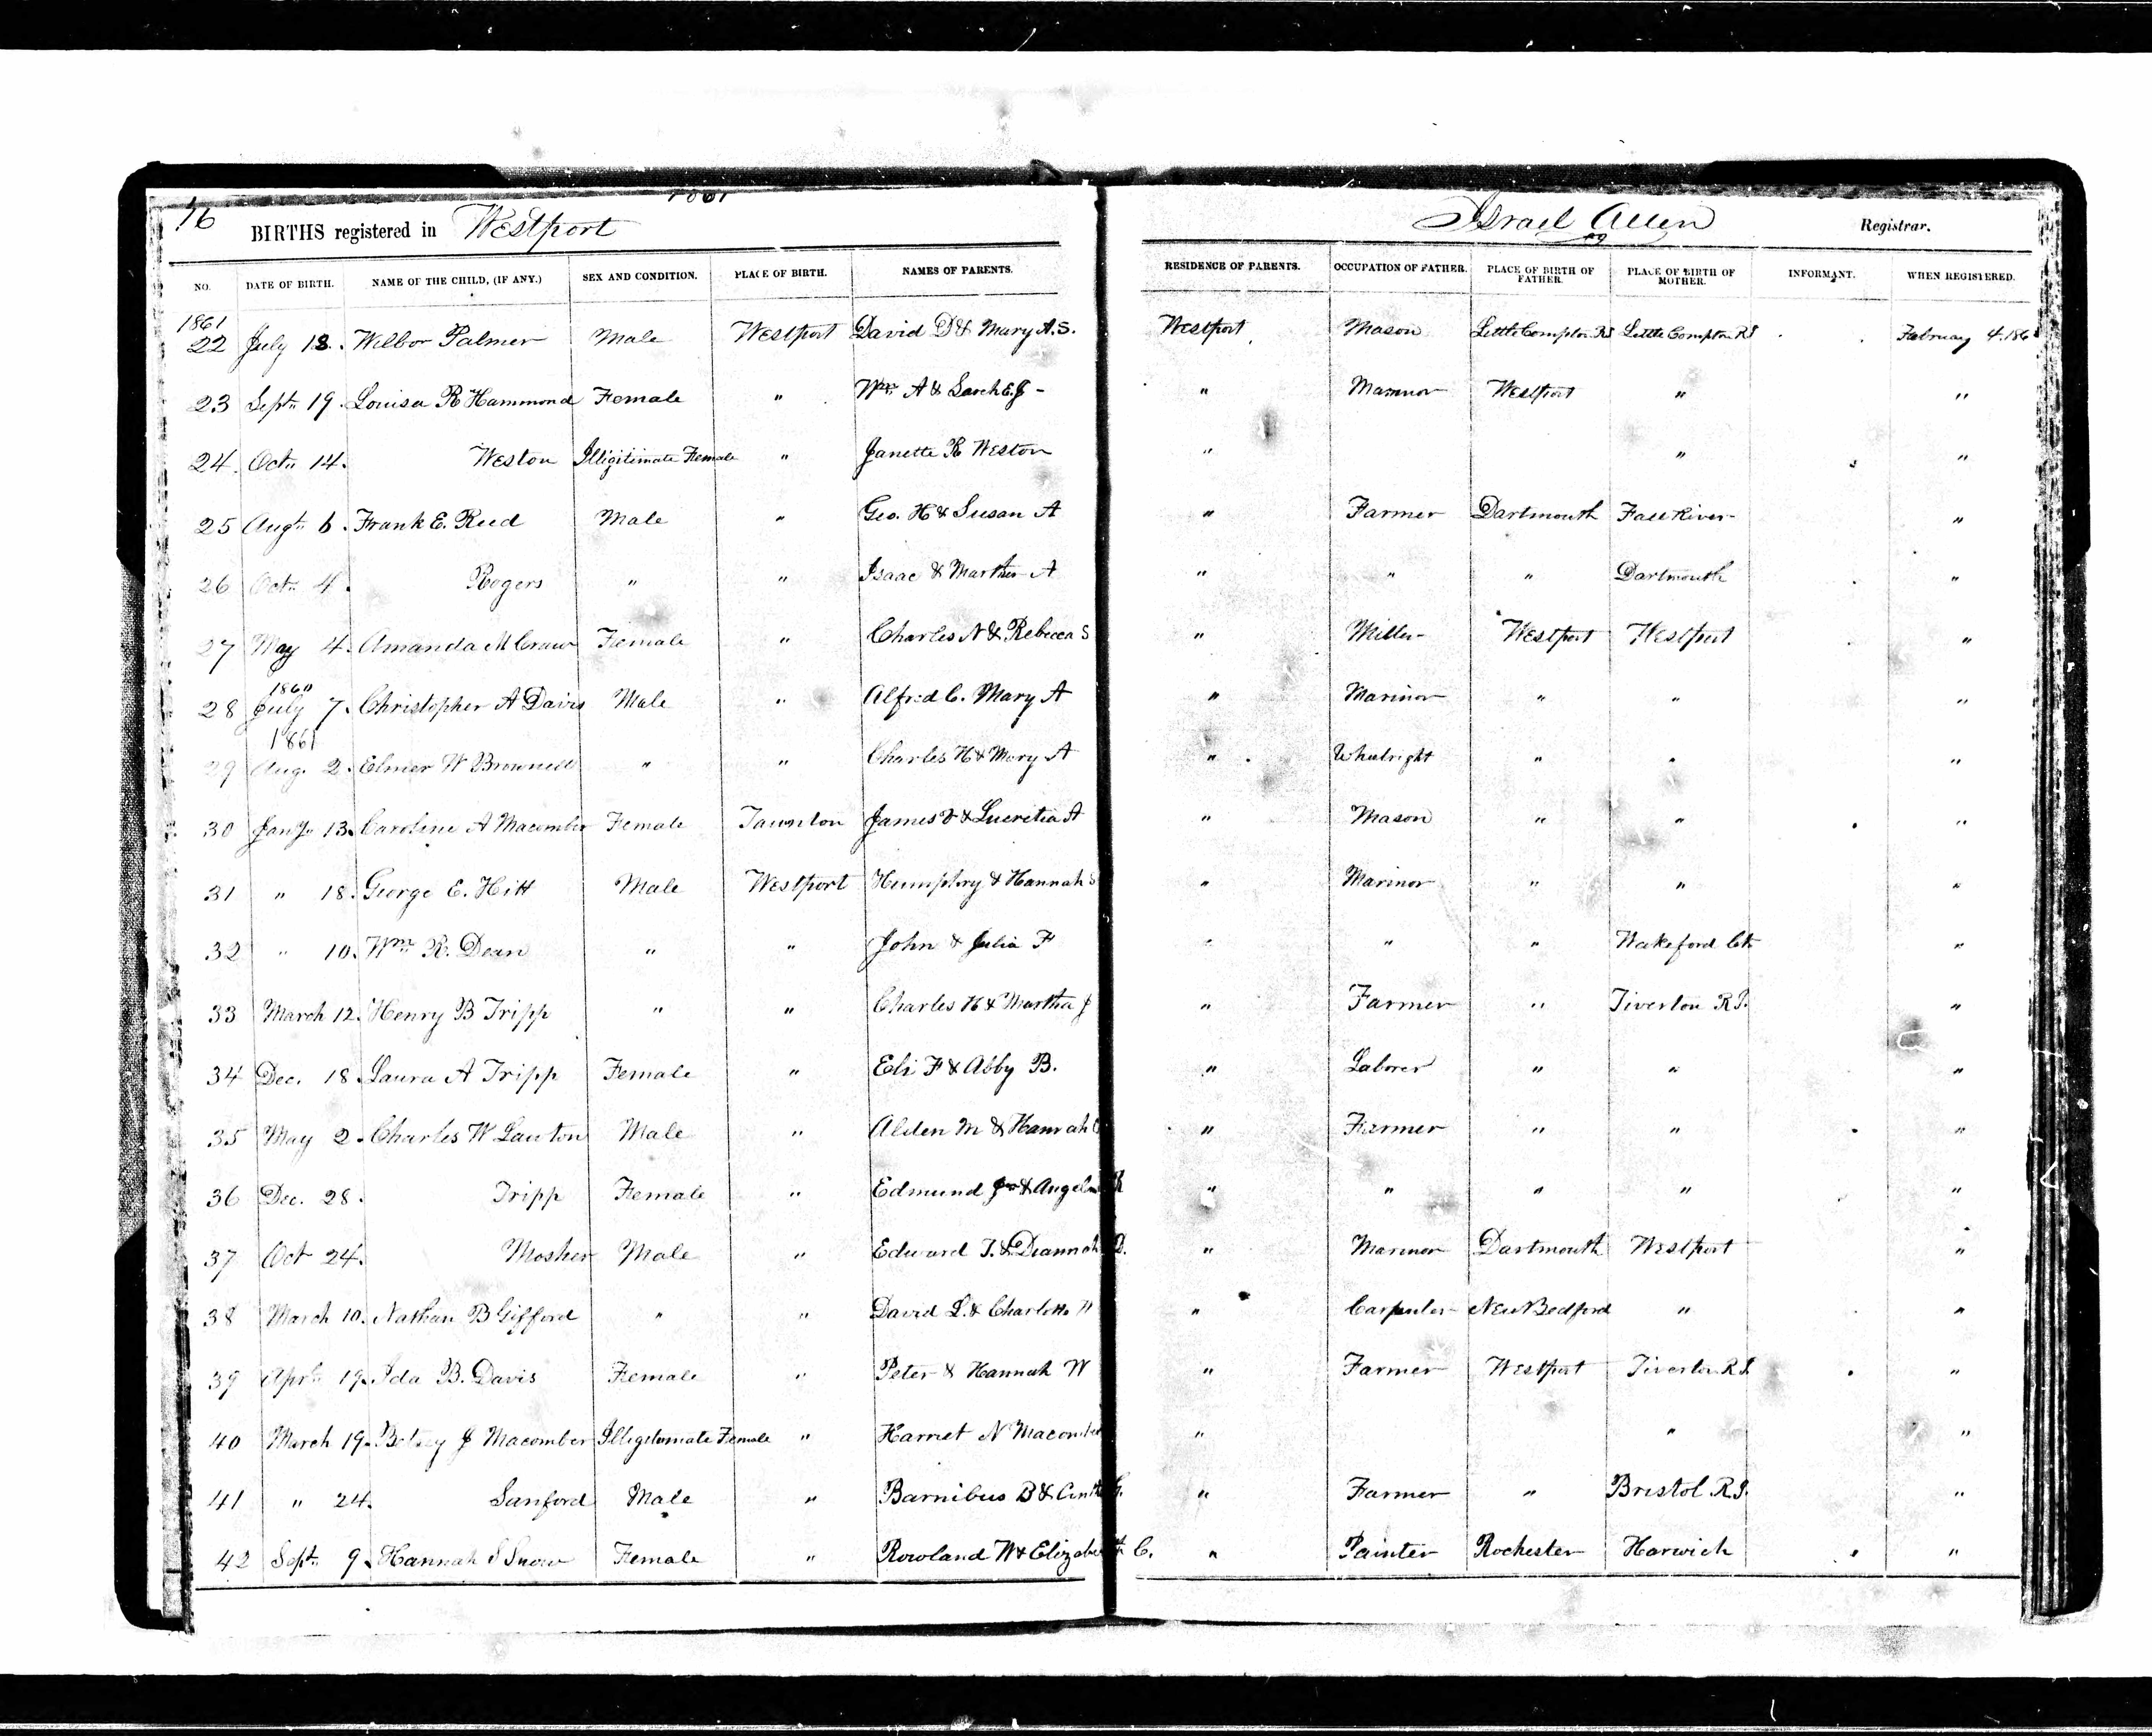 76 1861
BIRTHS registered in Westport Israel Allen Registrar.
NO. DATE OF BIRTH. NAME OF THE CHILD, (IF ANY.) SEX AND CONDITION. PLACE OF BIRTH. NAMES OF PARENTS. RESIDENCE OF PARENTS. OCCUPATION OF FATHER. PLACE OF BIRTH OF FATHER. PLACE OF BIRTH OF MOTHER. INFORMANT. WHEN REGISTERED.
1861
22 July 18. Wilbor Palmer Male Westport David D & Mary A. S. Westport Mason Little Compton RI Little Compton RI February 4. 186
23 Sept. 19. Louisa R Hammond Female " Wm A & Sarah E. J - " Marinor Westport " "
24. Oct. 14. Weston Illigitimate Female " Janette R Weston " " "
25 Augt. 6. Frank E. Reed Male " Geo. H & Susan A " Farmer Dartmouth Fall River "
26 Oct. 4. Rogers " " Isaac & Marther A " " " Dartmouth "
27 May 4. Amanda M Craw Female " Charles N & Rebecca S " Miller Westport Westport "
1860
28 July 7. Christopher A Davis Male " Alfred C. Mary A " Marinor " " "
1861
29 Aug. 2. Elmer W Brownell " " Charles H & Mary A " Wheelright " " "
30 Jany. 13. Caroline A Macomber Female Taunton James & Lucretia A " Mason " " "
31 " 18. George E. Hitt Male Westport Humphry & Hannah S " Marinor " " "
32 " 10. Wm R. Dean " " John & Julia F " " " "
33 March 12. Henry B Tripp " " Charles H & Martha J " Farmer " Tiverton R I. "
34 Dec. 18. Laura A Tripp Female " Eli F & Abby B. " Laborer " " "
35 May 2. Charles W Lawton Male " Alden M & Hannah " Farmer " " "
36 Dec. 28. Tripp Female " Edmund Jr & R " " " " "
37 Oct 24. Mosher Male " Edward T. & Diannah D. " Marinor Dartmouth Westport "
38 March 10. Nathan B Gifford " " David L. & Charlotte " Carpenter New Bedford " "
39 Aprl. 19. Ida B. Davis Female " Peter & Hannah W " Farmer Westport Tiverton R I. "
40 March 19. Betsey J Macomber Illigitimate Female " Harriet N Macomber " " "
41 " 24. Sanford Male " Barnibus B & G. " Farmer " Bristol R I. "
42 Sept. 9. Hannah S Snow Female " Rowland W & Elizabeth C. " Painter Rochester Harwich "